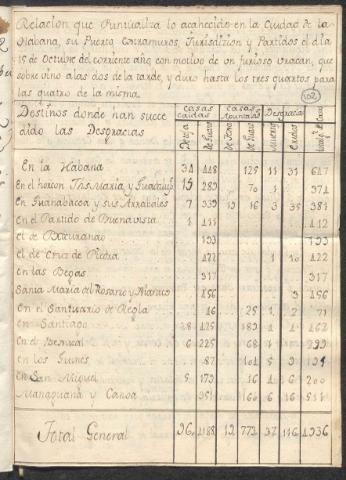 Relacion que Puntualiza lo acahecido en la Ciudad de la
Habana, su Puerto Extramuros, Jurisdicion y Partidos el dia
15 de Octubre del corriente año con motivo de un furioso Uracan, que
sobre vino a las dos de la tarde, y duró hasta los tres quartos para
las quatro de la misma.
102
Destinos donde han succe
dido las Desgracias
casas caidas
casas Apuntaladas
Desgracias
de teja de Guano de teja de Guano Muertos
En la Habana 34 448 125 11 31 647
En el horcon Jhs. Maria y Guadalupe 19 283 70 1 374
En Guanabacoa y sus Arrabales 339 12 16 3 35 381
En el Partido de Buenavista 1 411 412
el de Bacuranao 193 193
el de Cruz de Piedra 422 1 10 422
en las Begas 317 317
Santa Maria del Rosario y Nazareno 456 3 456
En el Santuario de Regla 46 25 1 2 71
en Santiago 28 425 189 4 4 462
En el Bejucal 6 225 68 1 299
en los Guines 87 104 5 3
en San Miguel 5 173 16 4 6 200
Managuana y Canoa 351 160 6 16 511
Total General 96 4188 12 773 37 116 4936